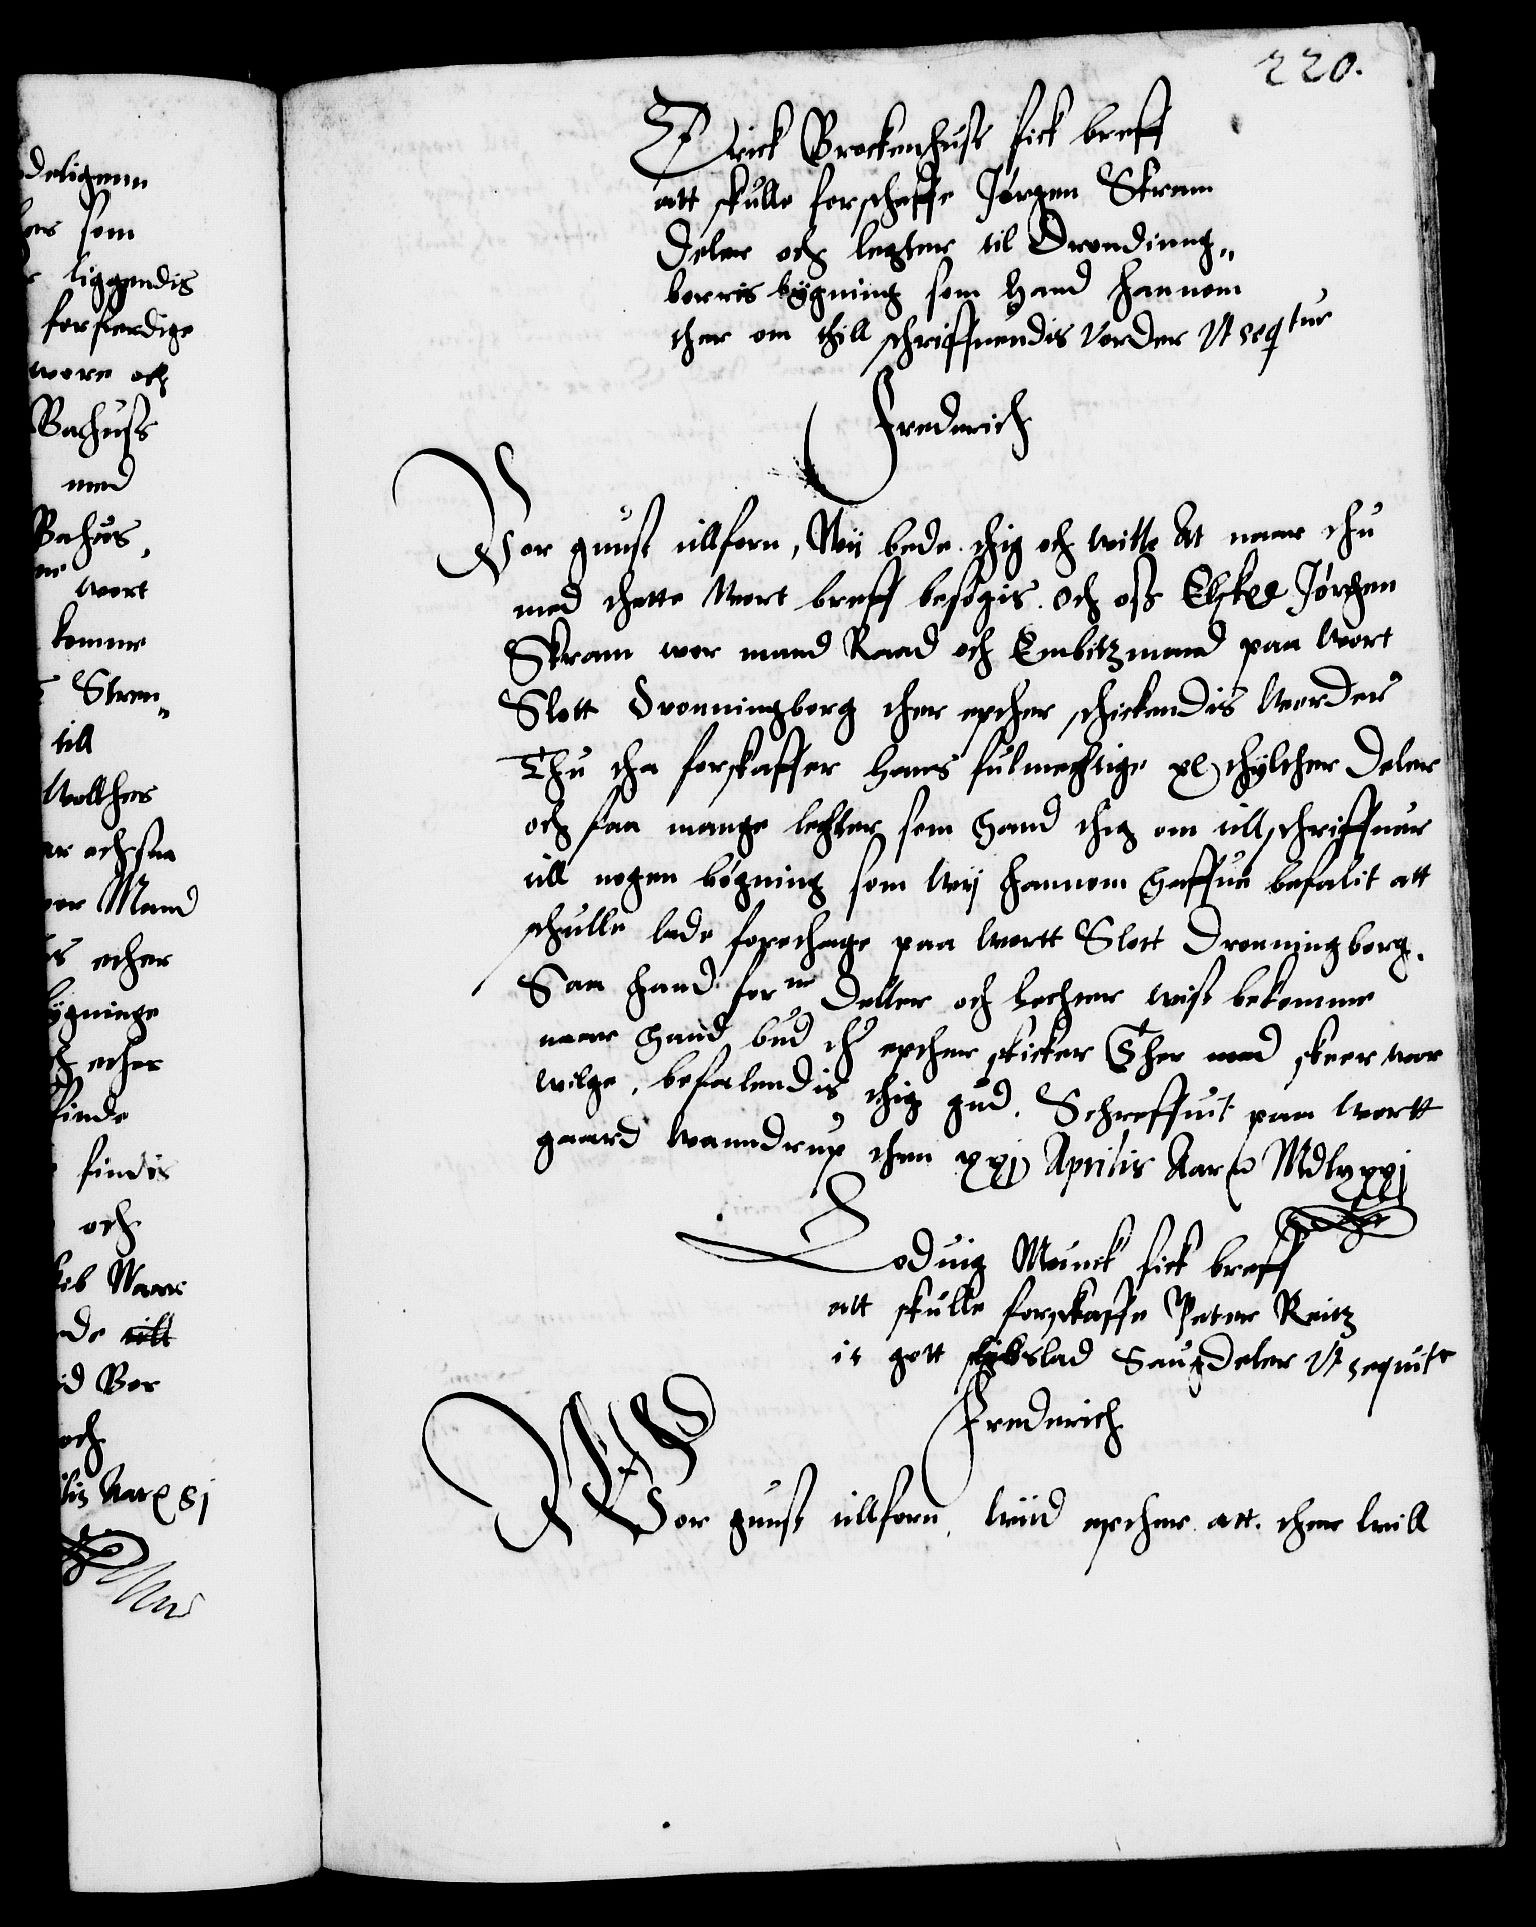 220.
Erick Brockenhuss fick breff
att skulle forschaffe Jørgen Skram
Deler och legter til Drondinng„
borris bÿgning som hand hannom
ther om thill schriffuendis vorder Vt seqtur
Frederich
Vor gunst tillforn, Wii bede thig och witte At naar thu
med thette Wort breff besøgis. Och oss Elske Jørgen
Skram wor mand Raad och Embitzmand paa Wort
Slott Dronningborg ther epther schickendis Worder
Thu tha forskaffer hans fulmechtige xl thylther Deler
och saa mange lechter som hand thig om tillschriffuer
till nogen bøgning som Wij hannom haffue befalit att
schulle lade foretage paa Wortt Slot Dronningborg.
Saa hand forne Deller och Lechter wist bekomme
naar hand bud th epther skicker Ther med skeer wor
wilge, befalendis thig gud. Schreffuit paa Wortt
gaard Wanndrup then xxj Aprilis Aar &c Mdlxxxj
Loduig Munck fick breff
att skulle forskaffe Peter Reitz
it gott skibslad Saugdeler Vt sequitr
Frederich
Vor gunst tillforn, Wiid epther att ther Will
deligenn
som
liggendis
forfierdige
wore och
Bachuss
med
Bahus,
Wort
komme
Stren„
till
Wellthes
och saa
Mand
ether
bÿgninge
ether
finde
findis
och
Naar
till
Bor
och
Aar &c 81